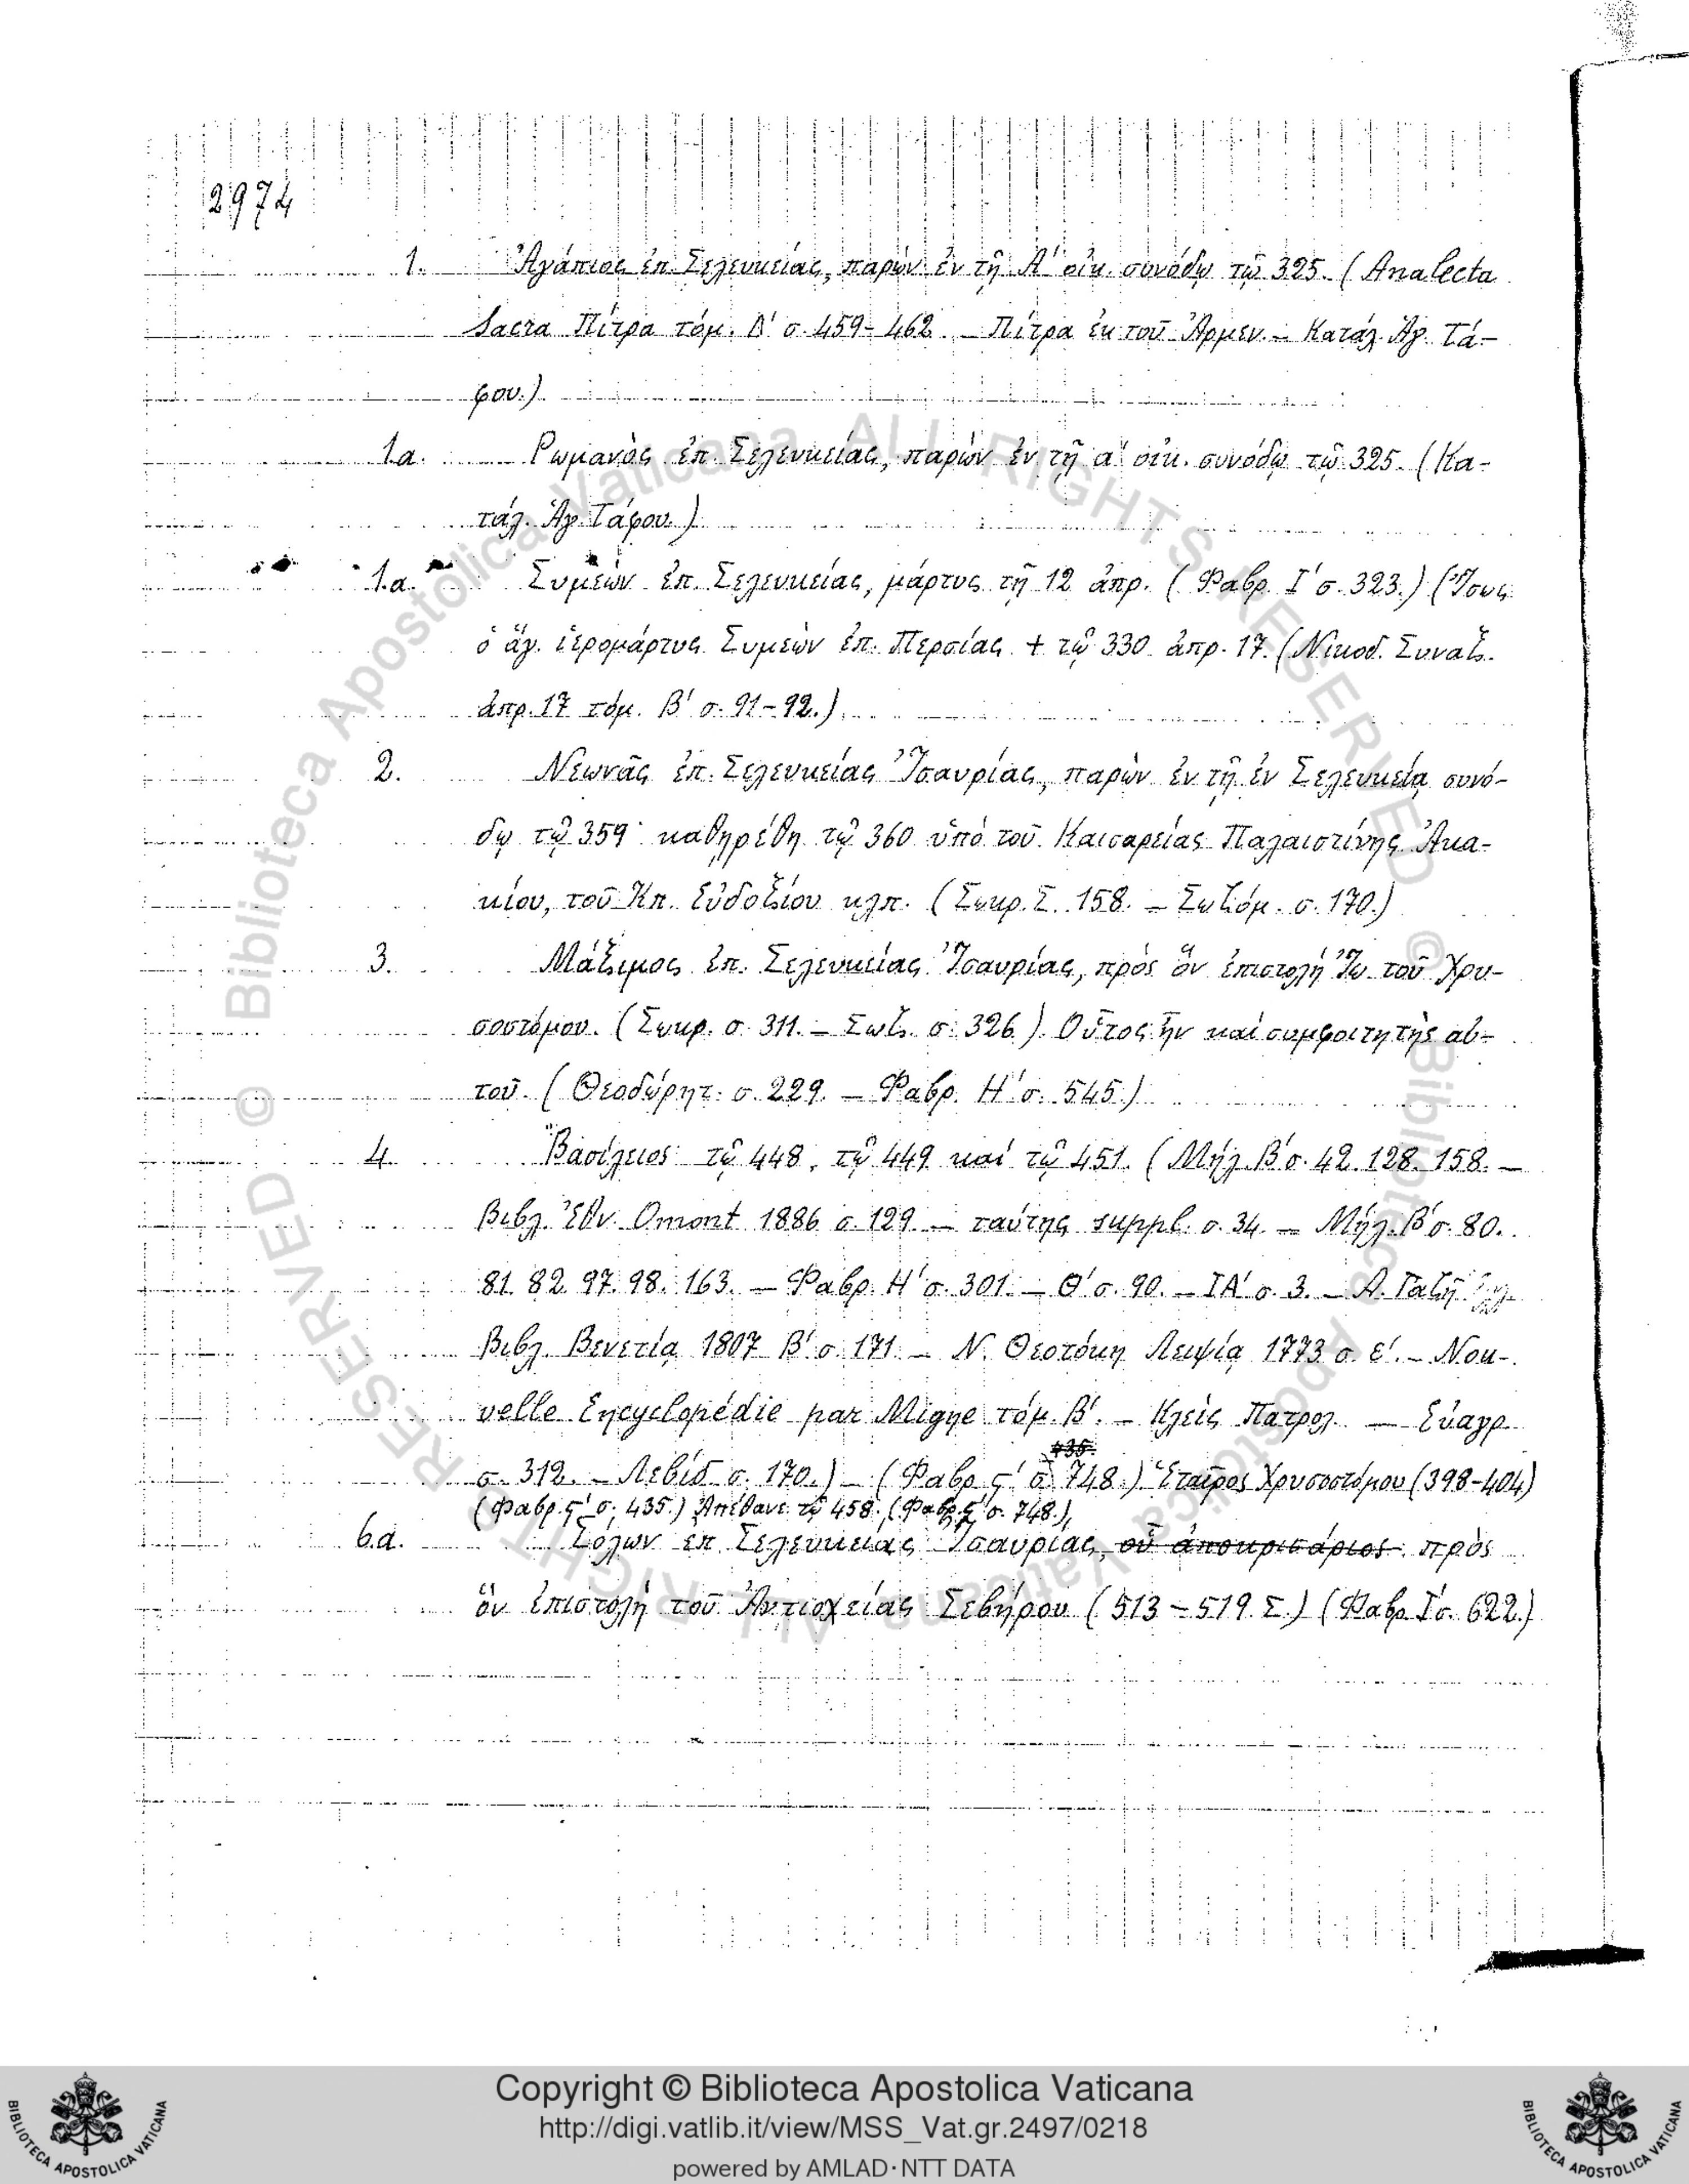 2974
1. Ἀγάπιος ἐπ. Σελευκείας, παρὼν ἐν τῇ Α′ οἰκ. συνόδῳ τῷ 325. (Analecta
Sacra Πίτρα τόμ. Δ′ σ. 459-462 – Πίτρα ἐκ τοῦ Ἀρμεν. – Κατάλ. Ἁγ. Τά-
φου.)
1a. Ρωμανὸς ἐπ. Σελευκείας, παρὼν ἐν τῇ α′ οἰκ. συνόδῳ τῷ 325. (Κα-
τάλ. Ἁγ. Τάφου.)
1.a. Συμεὼν ἐπ. Σελευκείας, μάρτυς τῇ 12 ἀπρ. (Φαβρ. Ι′ σ. 323.) (Ἴσως
ὁ ἅγ. ἱερομάρτυς Συμεὼν ἐπ. Περσίας + τῷ 330 ἀπρ. 17. (Νικοδ. Συναξ.
ἀπρ. 17 τόμ. Β′ σ. 91-92.)
2. Νεωνᾶς ἐπ. Σελευκείας Ἰσαυρίας, παρὼν ἐν τῇ ἐν Σελευκείᾳ συνό-
δῳ τῷ 359· καθῃρέθη τῷ 360 ὑπὸ τοῦ Καισαρείας Παλαιστίνης Ἀκα-
κίου, τοῦ Κπ. Εὐδοξίου κλπ. (Σωκρ. Σ. 158. – Σωζόμ. σ. 170.)
3. Μάξιμος ἐπ. Σελευκείας Ἰσαυρίας, πρὸς ὃν ἐπιστολὴ Ἰω. τοῦ Χρυ-
σοστόμου. (Σωκρ. σ. 311. – Σωζ. σ. 326.) Οὗτος ἦν καὶ συμφοιτητὴς αὐ-
τοῦ. (Θεοδώρητ. σ. 229. – Φαβρ. Η′ σ. 545.)
4. Βασίλειος τῷ 448, τῷ 449 καὶ τῷ 451. (Μήλ. Β′ σ. 42. 128. 158. –
Βιβλ. Ἐθν. Omont 1886 σ. 129 – ταύτης suppl. σ. 34. – Μήλ. Β′ σ. 80.
81. 82. 97. 98. 163. – Φαβρ. Η′ σ. 301. – Θ′ σ. 90. – ΙΑ′ σ. 3. – Α. Γαζῆ
Βιβλ. Βενετίᾳ 1807 Β′ σ. 171 – Ν. Θεοτόκη Λειψίᾳ 1773 σ. ε′. – Nou-
velle Encyclopédie par Migne τόμ. Β′. – Κλεὶς Πατρολ. – Εὐαγρ.
435.
σ. 312. – Λεβίδ. σ. 170.) – (Φαβρ. ς′ σ. 748.) Ἑταῖρος Χρυσοστόμου (398-404)
(Φαβρ. ς′ σ. 435.) Ἀπέθανε τῷ 458. (Φαβρ. ς′ σ. 748.)
6.a. Σόλων ἐπ. Σελευκείας Ἰσαυρίας, οὗ ἀποκρισάριος πρὸς
ὃν ἐπιστολὴ τοῦ Ἀντιοχείας Σεβήρου (513-519. Σ.) (Φαβρ. Ι′ σ. 622.)
Copyright © Biblioteca Apostolica Vaticana
http://digi.vatlib.it/view/MSS_Vat.gr.2497/0218
powered by AMLAD·NTT DATA
BIBLIOTECA APOSTOLICA VATICANA
BIBLIOTECA APOSTOLICA VATICANA
© Biblioteca Apostolica Vaticana ALL RIGHTS RESERVED
© Biblioteca Apostolica Vaticana ALL RIGHTS RESERVED